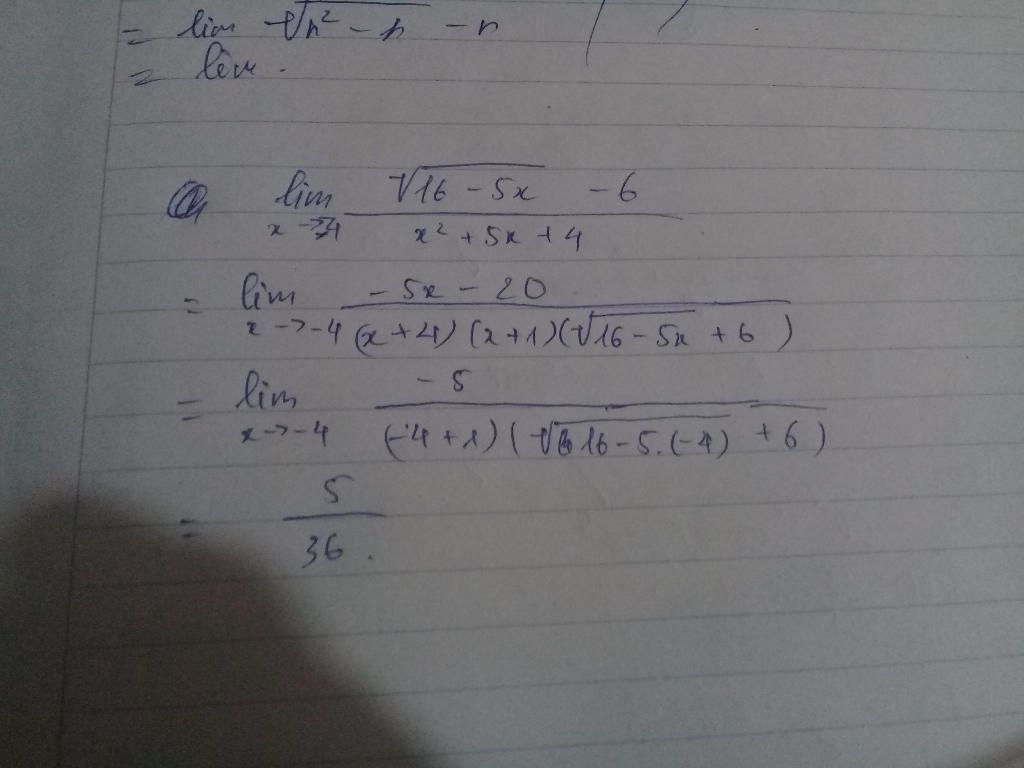 = lim √n² - n - n
= lim.
lim x→-4 (√16 - 5x - 6) / (x² + 5x + 4)
= lim x→-4 (-5x - 20) / ((x+4)(x+1)(√16-5x + 6))
= lim x→-4 -5 / ((-4+1)(√16-5.(-4) + 6))
= 5/36.